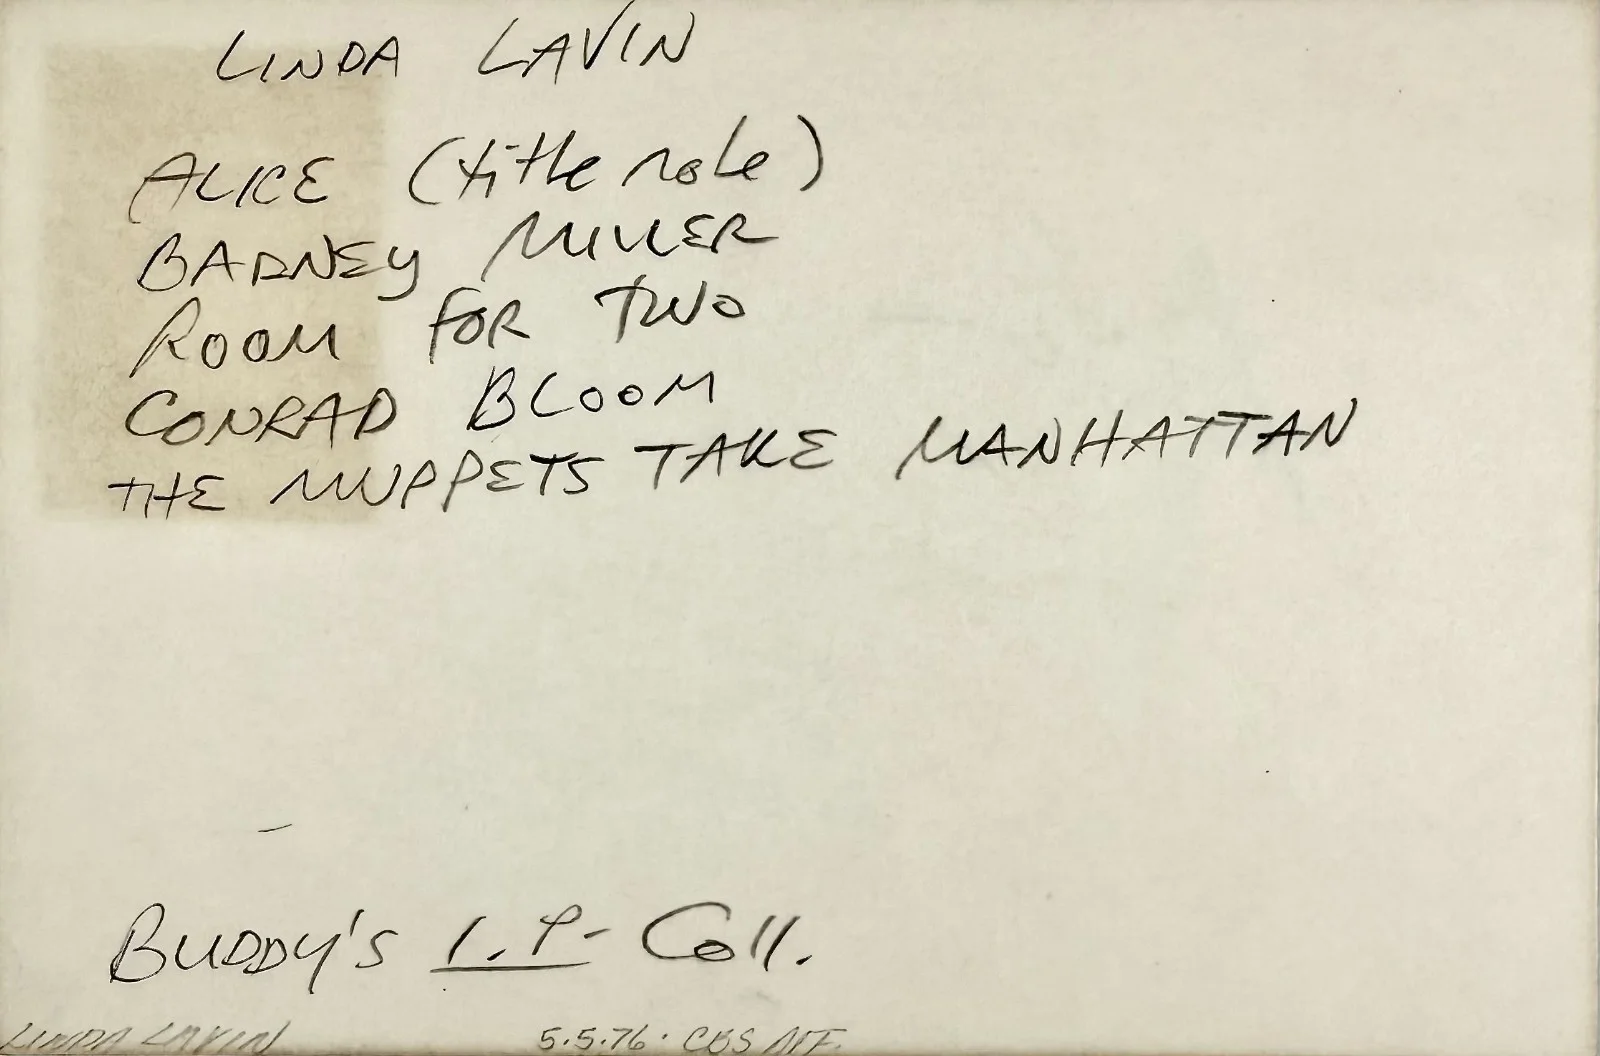 LINDA LAVIN
ALICE (title role)
BARNEY MILLER
ROOM FOR TWO
CONRAD BLOOM
THE MUPPETS TAKE MANHATTAN
BUDDY'S I.P. Coll.
LINDA LAVIN 5.5.76. CBS AFF.